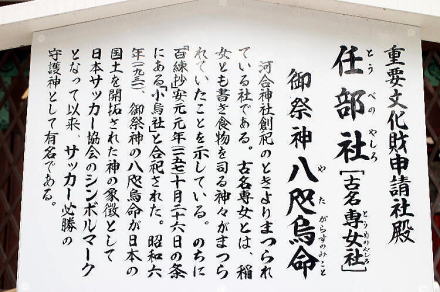 重要文化財申請社殿
任部社［古名専女社］
とうべのやしろ
とうめのやしろ
御祭神 八咫烏命
やたがらすのみこと
河合神社創祀のときよりまつられ
ている社である。古名専女とは、稲
女とも書き食物を司る神々がまつら
れていたことを示している。のちに
「百練抄」安元元年(一一七五)十月二十六日の条
にある「小烏社」と合祀された。昭和六
年(一九三一)、御祭神の八咫烏命が日本の
国土を開拓された神の象徴として
日本サッカー協会のシンボルマーク
となって以来、サッカー必勝の
守護神として有名である。